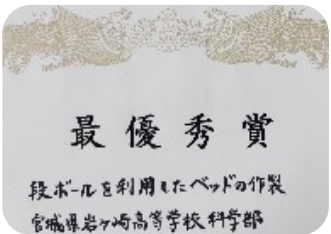 最優秀賞
段ボールを利用したベッドの作製
宮城県岩ケ崎高等学校 科学部